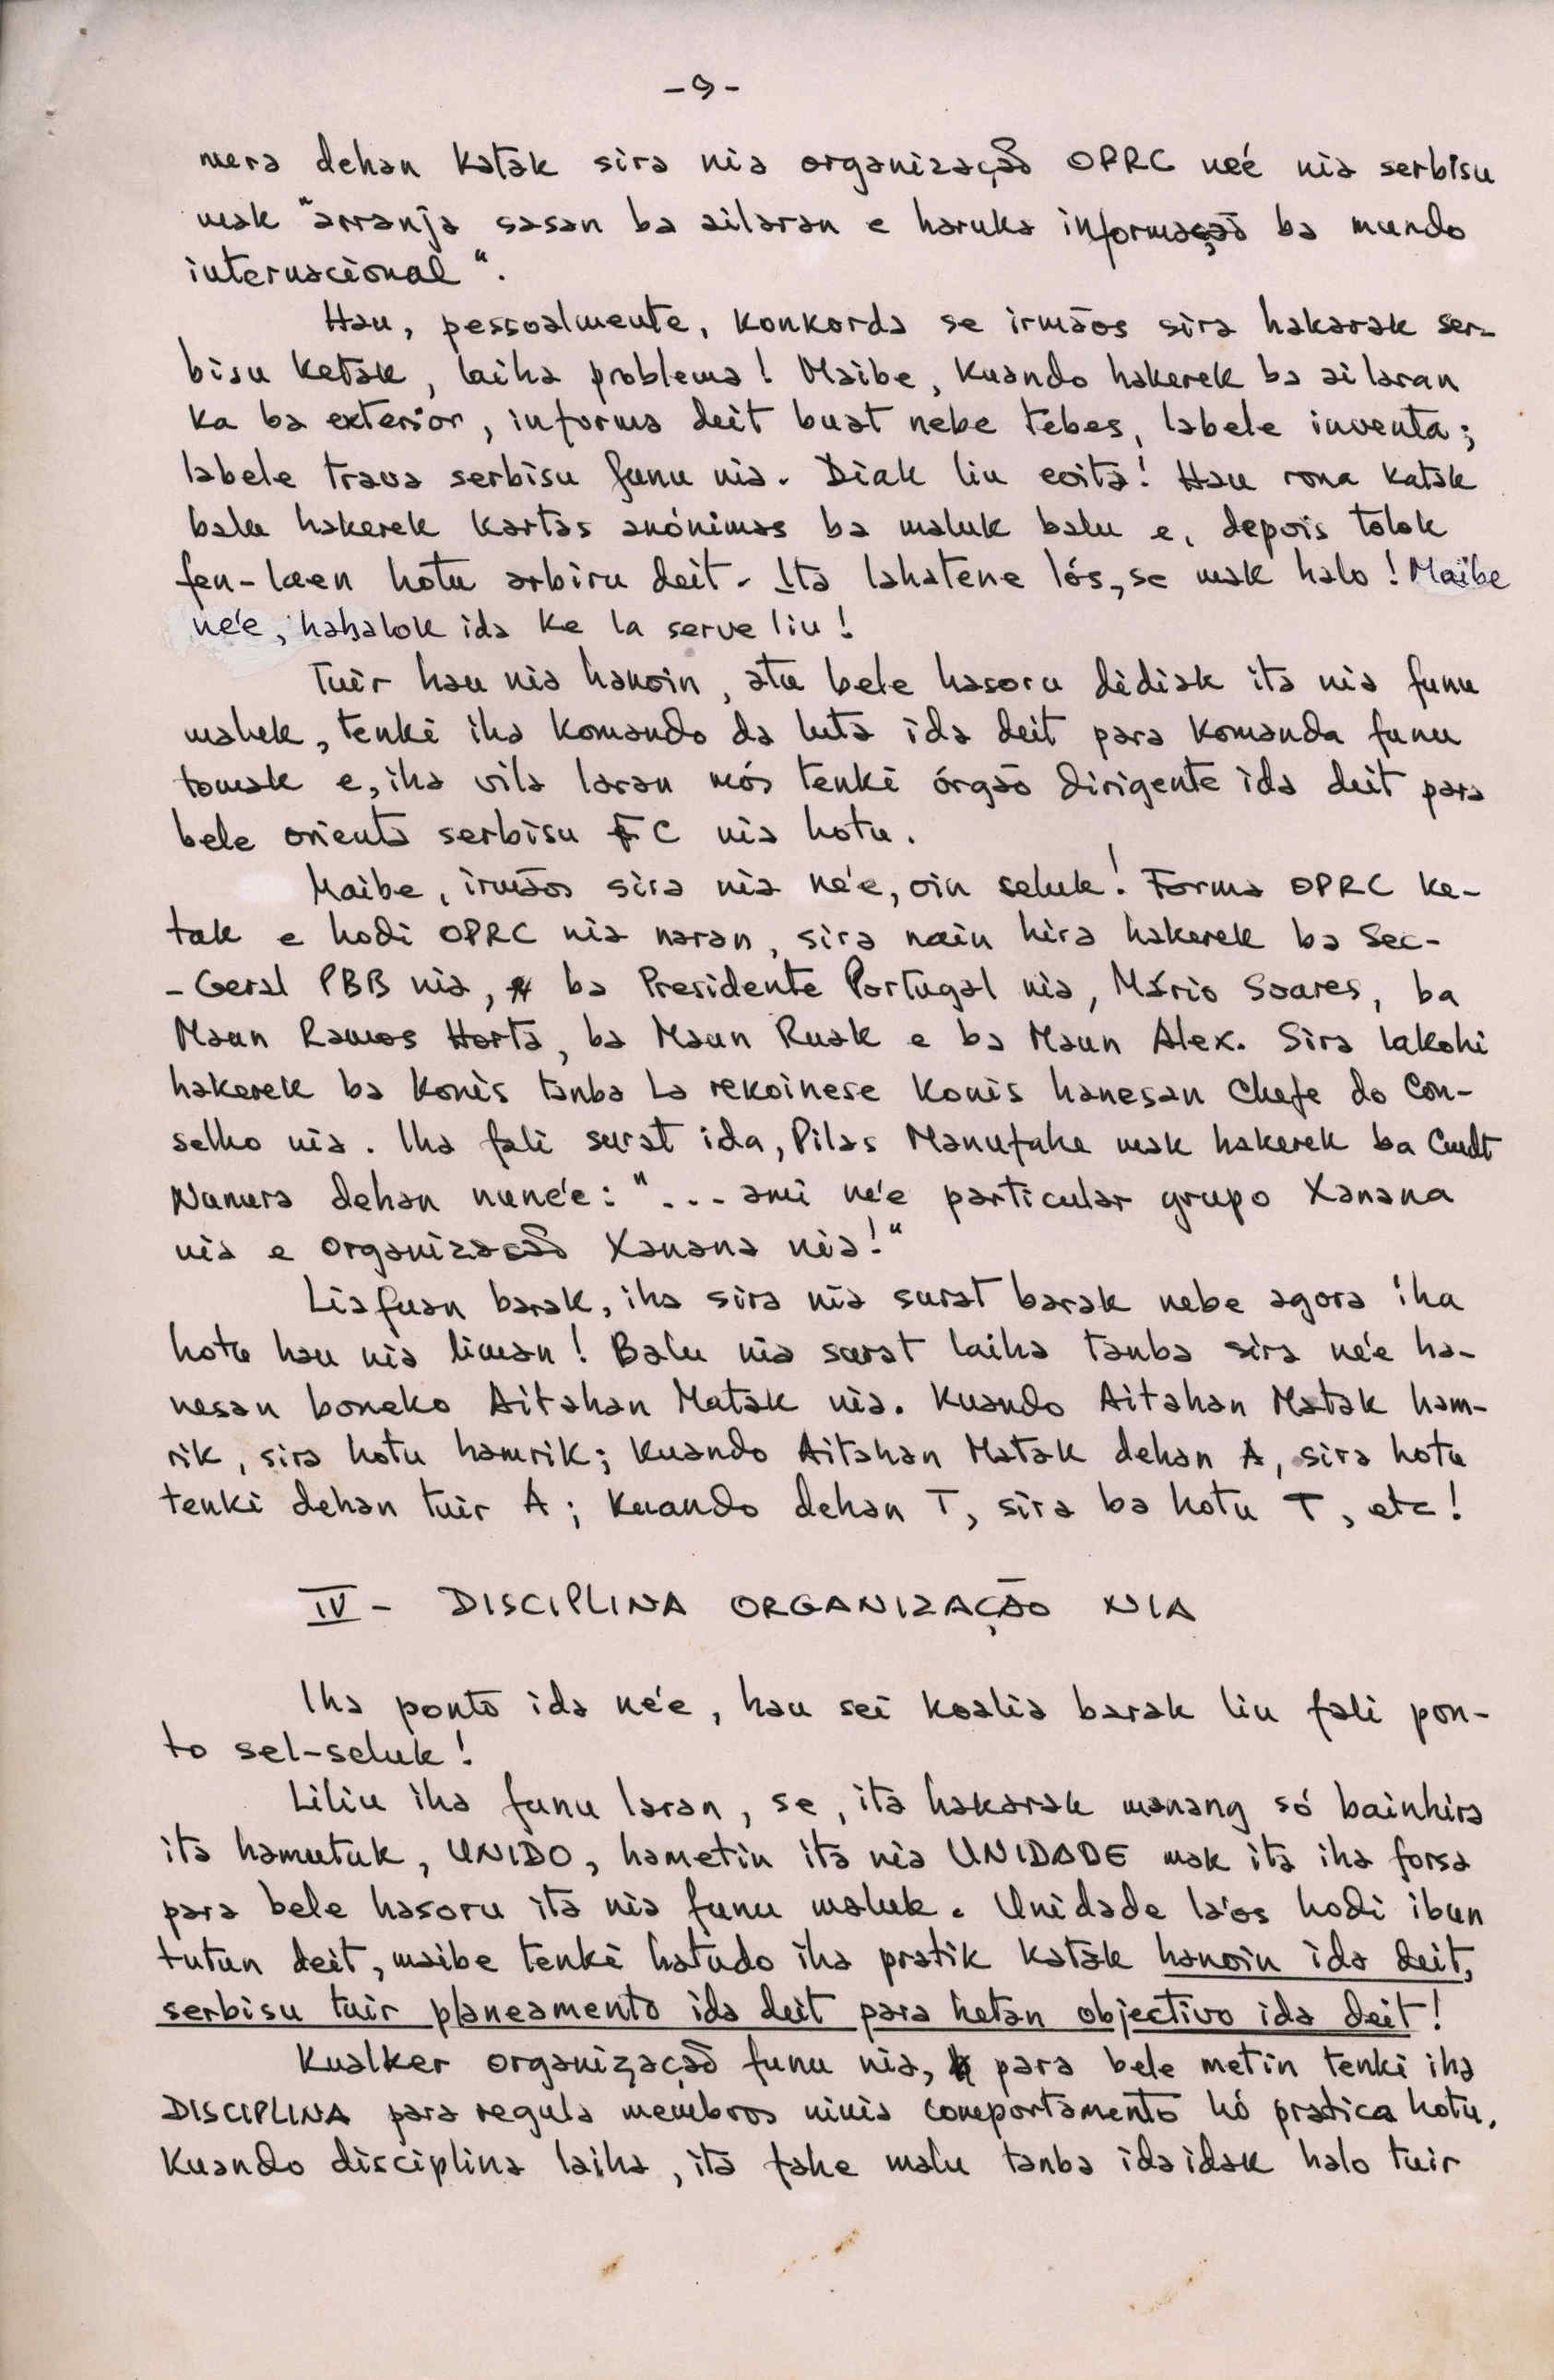 -9-
mera dehan katak sira nia organização OPRC neé nia serbisu
mak "arranja sasan ba ailaran e haruka informação ba mundo
internacional".
Hau, pessoalmente, konkorda se irmãos sira hakarak ser-
bisu ketak, laiha problema! Maibe, kuando hakerek ba ailaran
ka ba exterior, informa deit buat nebe tebes, labele inventa;
labele trava serbisu funu nia. Diak liu evita! Hau rona katak
balu hakerek kartas anónimas ba maluk balu e, depois tolok
fen-laen hotu arbiru deit. Ita lahatene lós, se mak halo! Maibe
ne'e, hahalok ida ke la serve liu!
Tuir hau nia hanoin, atu bele hasoru didiak ita nia funu
maluk, tenki iha komando da luta ida deit para komanda funu
tomak e, iha vila laran mós tenki órgão dirigente ida deit para
bele orienta serbisu FC nia hotu.
Maibe, irmãos sira nia ne'e, oin seluk! Forma OPRC ke-
tak e hodi OPRC nia naran, sira nain hira hakerek ba Sec-
-Geral PBB nia, ba Presidente Portugal nia, Mário Soares, ba
Maun Ramos Horta, ba Maun Ruak e ba Maun Alex. Sira lakohi
hakerek ba Konis tanba la rekoinese Konis hanesan Chefe do Con-
selho nia. Iha fali surat ida, Pilas Manufahe mak hakerek ba Cmdt
Nunura dehan nune'e: "... ami ne'e particular grupo Xanana
nia e organizacão Xanana nia!"
Liafuan barak, iha sira nia surat barak nebe agora iha
hotu hau nia liman! Balu nia surat laiha tanba sira ne'e ha-
nesan boneko Aitahan Matak nia. Kuando Aitahan Matak ham-
rik, sira hotu hamrik; kuando Aitahan Matak dehan A, sira hotu
tenki dehan tuir A; kuando dehan T, sira ba hotu T, etc!
IV - DISCIPLINA ORGANIZAÇÃO NIA
Iha ponto ida ne'e, hau sei koalia barak liu fali pon-
to sel-seluk!
Liliu iha funu laran, se, ita hakarak manang só bainhira
ita hamutuk, UNIDO, hametin ita nia UNIDADE mak ita iha forsa
para bele hasoru ita nia funu maluk. Unidade la'os hodi ibun
tutun deit, maibe tenki hatudo iha pratik katak hanoin ida deit,
serbisu tuir planeamento ida deit para hetan objectivo ida deit!
Kualker organização funu nia, para bele metin tenki iha
DISCIPLINA para regula membros ninia comportamento hó pratica hotu.
Kuando disciplina laiha, ita fahe malu tanba idaidak halo tuir